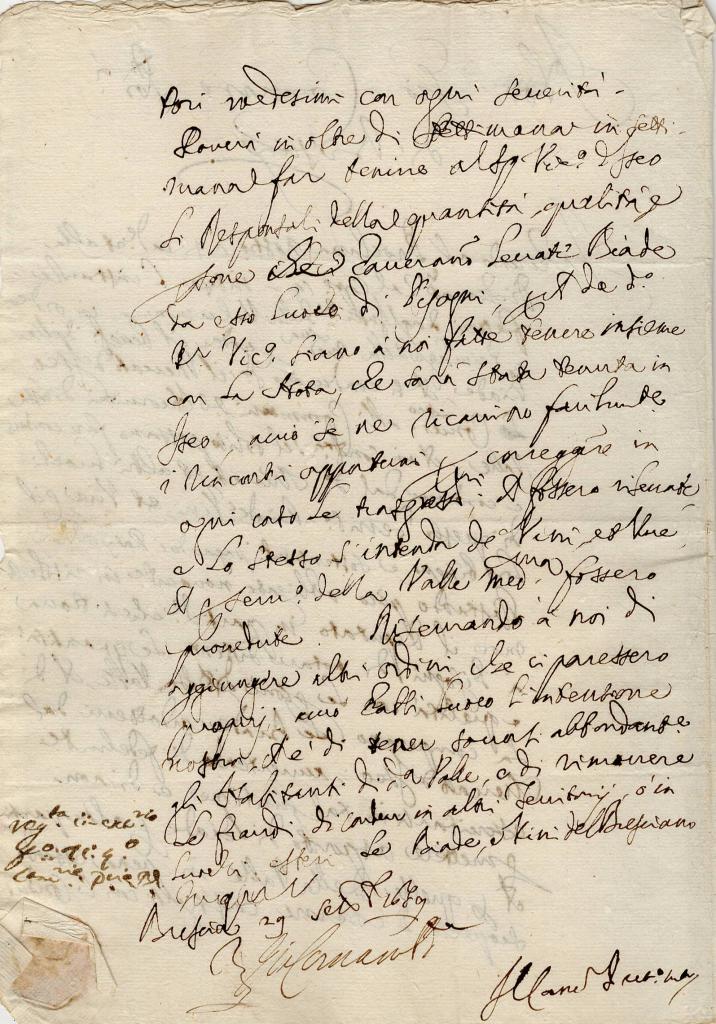 tori medesimi con ogni severità.
Doverà in oltre di settimana in setti-
mana far tenire al Sg.r Vic.o d'Iseo
li Responsali della quantità, qualità, e
che saveranno levate Biade
da esso luoco di Pisogni, et da d.o
S.r Vic.o siano à noi fatte tenere insieme
con la Nota, che sarà stata tenuta in
Iseo, acciò se ne ricavino facilmente
i rincontri opportuni, per correggere in
ogni caso le trasgressi.ni, che fossero rilevate
e lo stesso s'intenda de Vini, et Uve,
che per serv.o della Valle med.ma fossero
provedute. Riservando à noi di
aggiungere altri ordini che ci paressero
proprij acciò habbi luoco l'intentione
nostra, ch'è di tener provisti abbondante.e
gli Habitanti di d.a Valle, e di rimovere
le fraudi di condur in altri Territorij, ò in
luochi esteri le Biade, e Vini del Bresciano
In quor.
Brescia 29 Sett.e 1679